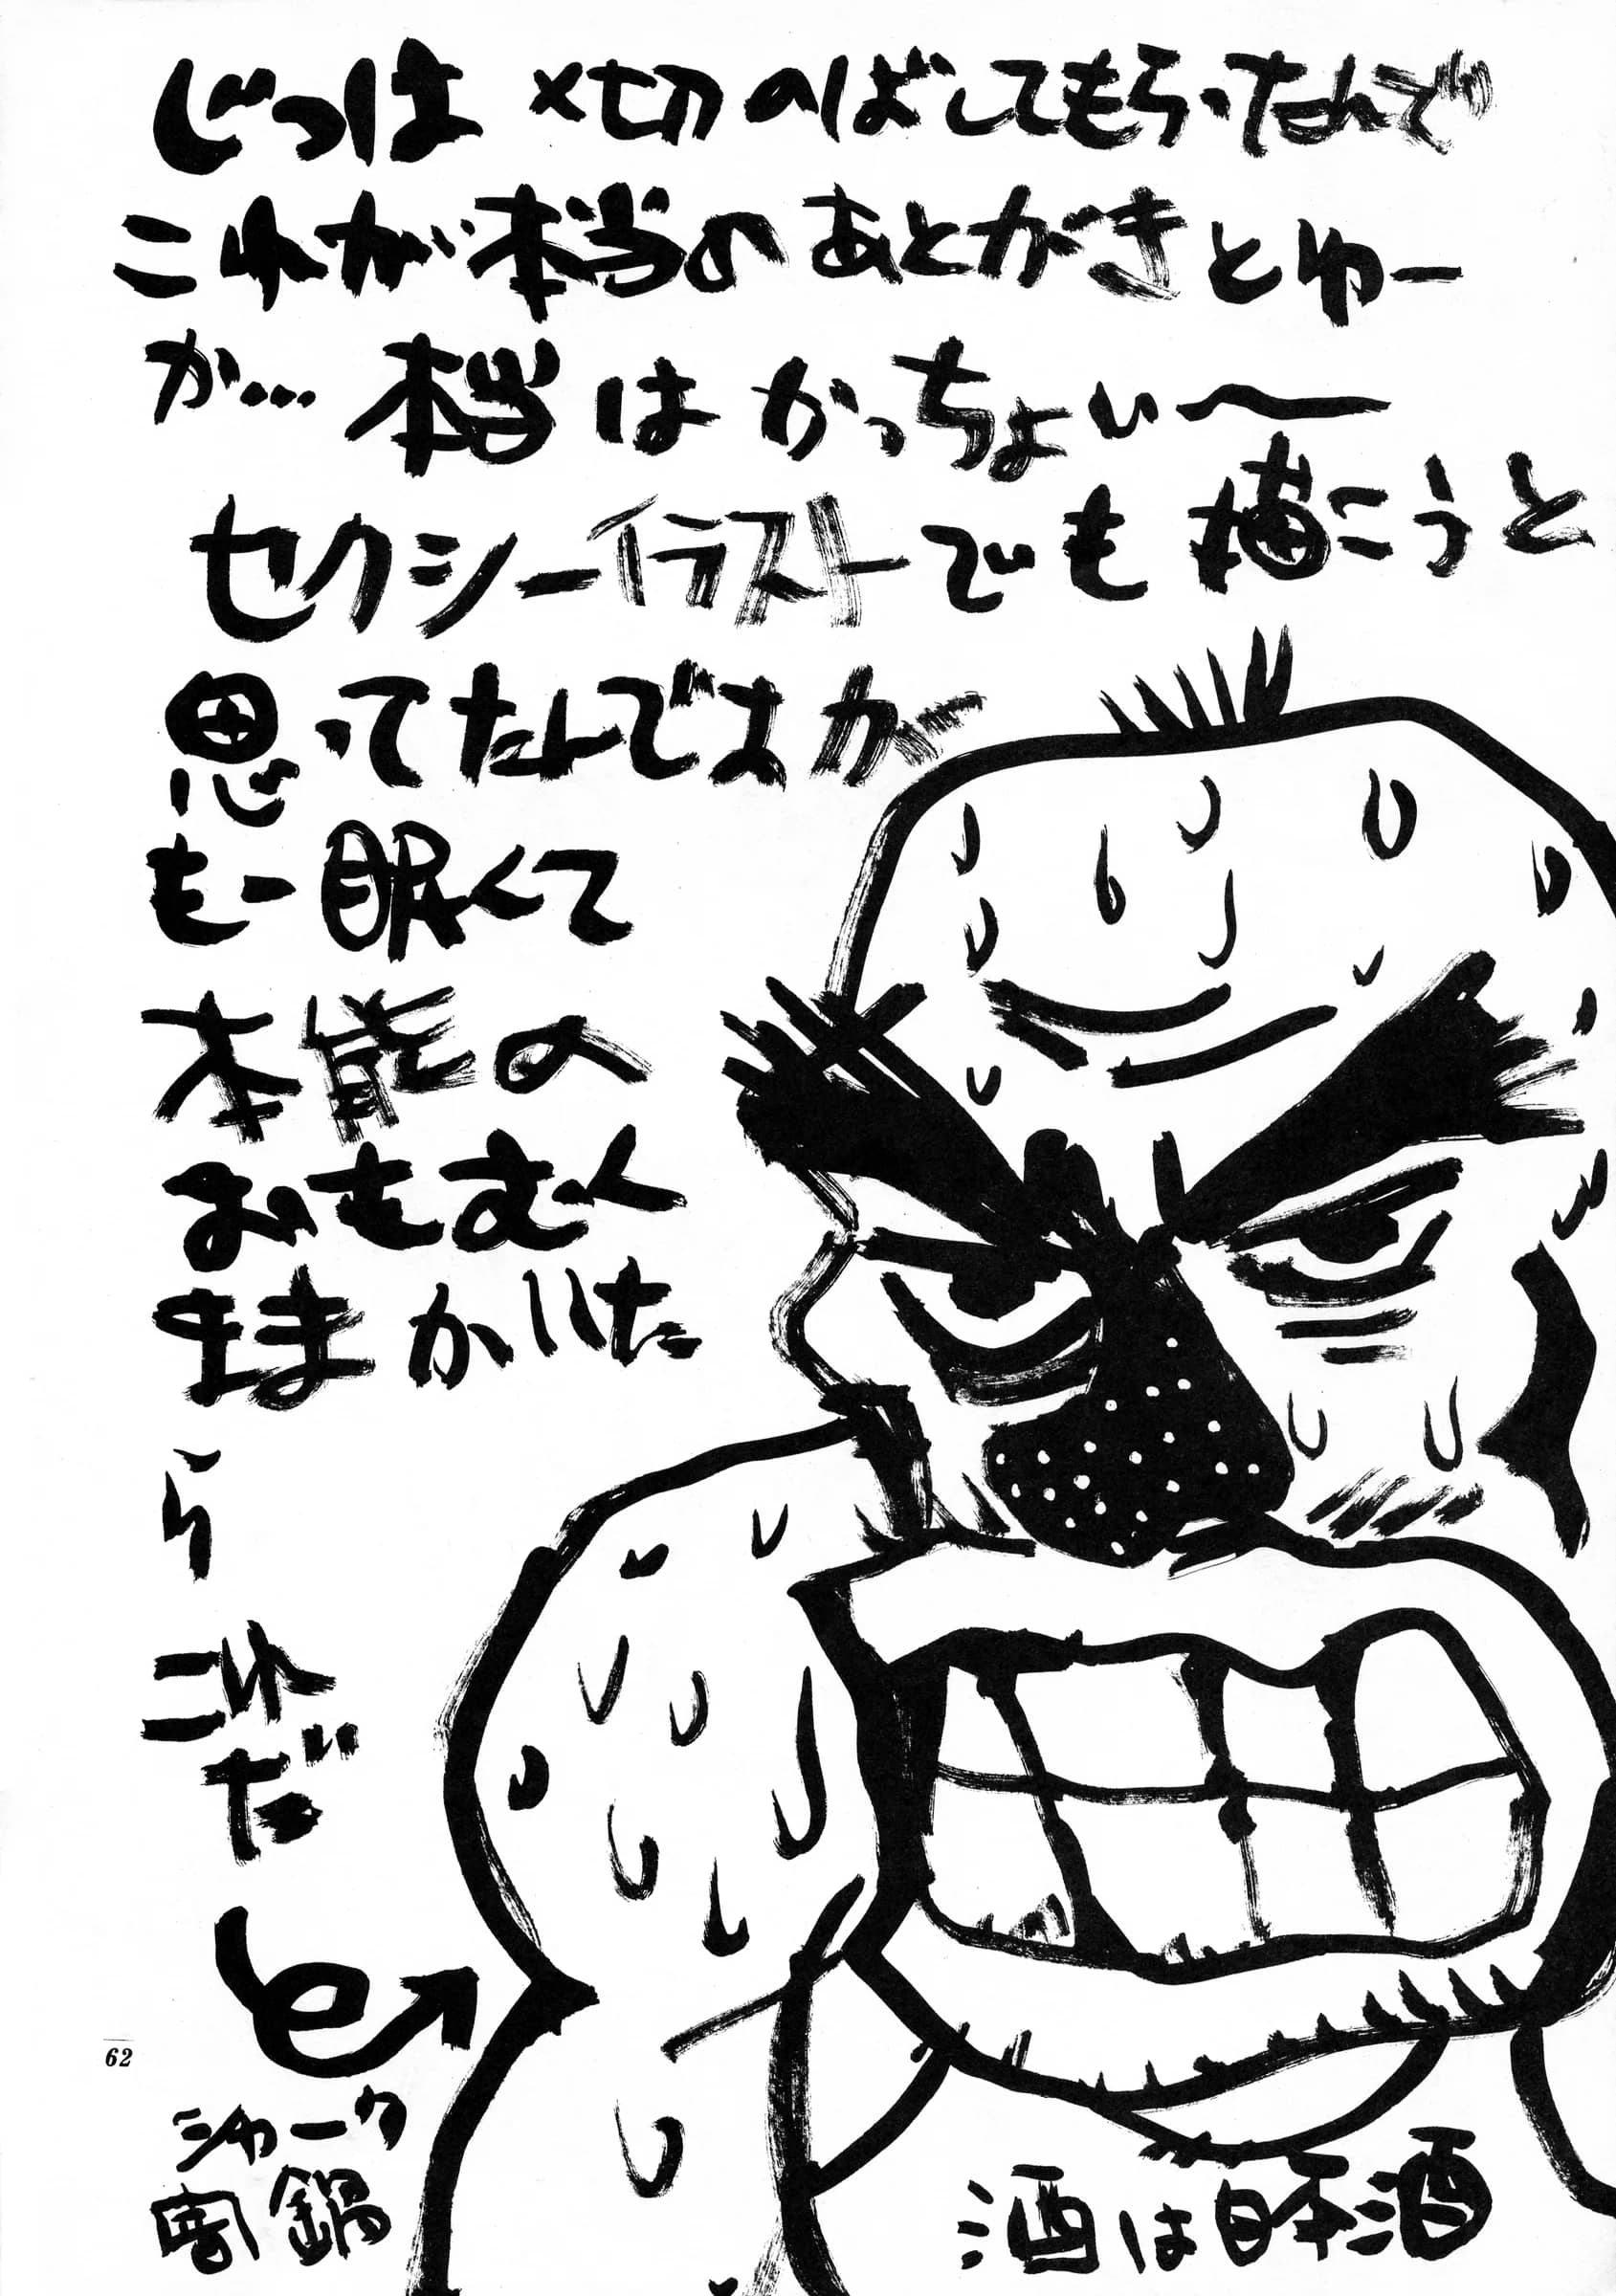 じつは〆切のばしてもらったんで
これが本当のあとがきとゆー
が…本当はかっちょいー
セクシーイラストでも描こうと
思ってたんですが
もー眠くて
本能の
おもむく
ままかいた
ら
これ
だ
シャーク
鍋
酒は日本酒
62